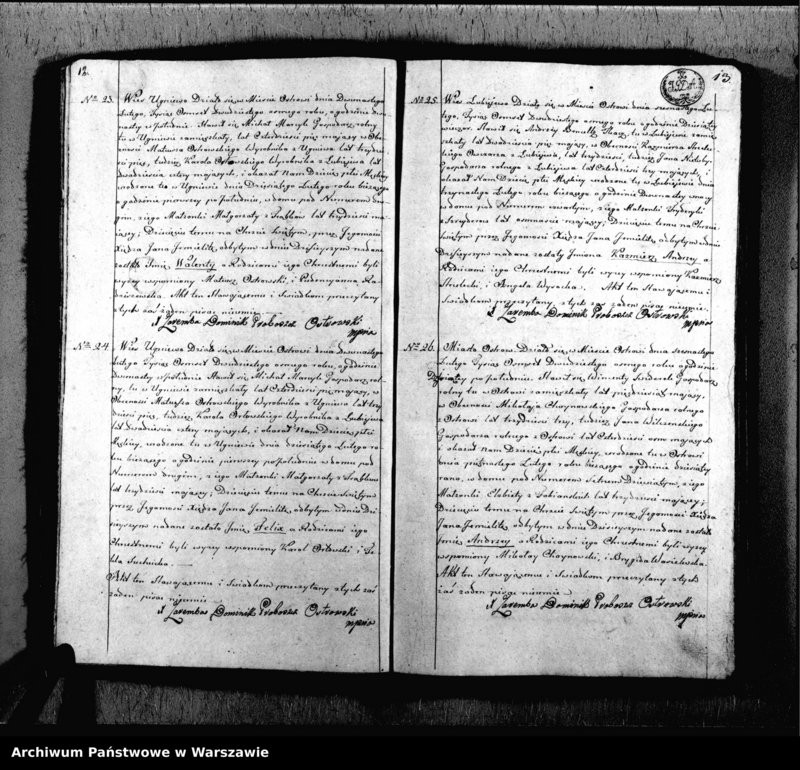 12.
Nro 23. Wieś Ugniewo Działo się w Mieście Ostrowi dnia Dwunastego
Lutego, Tysiąc Osmset Dwudziestego osmego roku, o godzinie dwu-
nastey w południe. Stawił się Michał Gospodarz rolny,
tu w Ugniewie zamieszkały, lat Czterdzieści pięć mający w Obe-
cności Mateusza Ostrowskiego Wyrobnika z Ugniewa lat trzydzie-
ści pięć, tudzież Karola Wyrobnika z Lubiejewa lat
dwadzieścia cztery mających, i okazał Nam Dziecię płci Męskiey
urodzone tu w Ugniewie dnia Dziesiątego Lutego roku bieżącego
o godzinie pierwszey po południu, w domu pod Numerem dru-
gim, z iego Małżonki Małgorzaty z lat trzydzieści ma-
iącey; Dziecięciu temu na Chrzcie Świętym, przez Jegomości
Xiędza Jana odbytym w dniu Dzisieyszym nadane
zostało Imie Walenty a Rodzicami iego Chrzestnemi byli
wyżey wspomniony Mateusz Ostrowski, i
Akt ten Stawaiącemu i Świadkom przeczytany
z tych zaś żaden pisać nieumie.
X Zaremba Dominik Proboszcz Ostrowski
mpria
Nro 24. Wieś Ugniewo Działo się w Mieście Ostrowi dnia dwunastego
Lutego Tysiąc Osmset Dwudziestego osmego roku, o godzinie
dwunastey w południe Stawił się Michał Gospodarz rol-
ny, tu w Ugniewie zamieszkały lat Czterdzieści pięć mający, w
Obecności Mateusza Ostrowskiego Wyrobnika z Ugniewa lat trzy-
dzieści pięć, tudzież Karola Wyrobnika z Lubiejewa
lat dwadzieścia cztery mających, i okazał Nam Dziecię płci
Męskiey, urodzone tu w Ugniewie dnia dziesiątego Lutego ro-
ku bieżącego o godzinie pierwszey po południu w domu pod
Numerem drugim, z iego Małżonki Małgorzaty z
lat trzydzieści maiącey; Dziecięciu temu na Chrzcie Świętym
przez Jegomości Xiędza Jana odbytym w dniu Dzi-
sieyszym nadane zostało Imie Felix a Rodzicami iego
Chrzestnemi byli wyżey wspomniony Karol i
Akt ten Stawaiącemu i Świadkom przeczytany z tych zaś
żaden pisać nieumie
X Zaremba Dominik Proboszcz Ostrowski
mpria
13.
Nro 25. Wieś Lubiejewo Działo się w Mieście Ostrowi dnia Lu-
tego, Tysiąc Osmset Dwudziestego osmego roku o godzinie
wieczor. Stawił się Andrzey tu w Lubiejewie zamie-
szkały lat dwadzieścia pięć mający, w Obecności Kazimierza
Owczarza z Lubiejewa, lat trzydzieści, tudzież Jana
Gospodarza rolnego z Lubiejewa lat Czterdzieści trzy mających, i
okazał Nam Dziecię płci Męskiey urodzone tu w Lubiejewie dnia
trzynastego Lutego roku bieżącego o godzinie Dwunastey w nocy
w domu pod Numerem czwartym, z iego Małżonki
lat osmnaście maiącey; Dziecięciu temu na Chrzcie
Świętym przez Jegomości Xiędza Jana odbytym w dniu
Dzisieyszym nadane zostały Imiona Kazimierz Andrzey a
Rodzicami iego Chrzestnemi byli wyżey wspomniony Kazimierz
i Angela Akt ten Stawaiącemu i
Świadkom przeczytany, z tych zaś żaden pisać nieumie.
X Zaremba Dominik Proboszcz Ostrowski
mpria
Nro 26. Miasto Ostrow. Działo się w Mieście Ostrowi dnia
Lutego Tysiąc Osmset Dwudziestego osmego roku o godzinie
po południu. Stawił się Klimenty Gospodarz
rolny tu w Ostrowi zamieszkały lat pięćdziesiąt mający,
w Obecności Mikołaja Choynowskiego Gospodarza rolnego
z Ostrowi lat trzydzieści trzy, tudzież Jana Wilczewskiego
Gospodarza rolnego z Ostrowi lat Czterdzieści osm mających
i okazał Nam Dziecię płci Męskiey, urodzone tu w Ostrowi
dnia piętnastego Lutego roku bieżącego o godzinie dziesiątey
rano, w domu pod Numerem z iego
Małżonki Elżbiety z lat trzydzieści maiącey;
Dziecięciu temu na Chrzcie Świętym przez Jegomości Xiędza
Jana odbytym w dniu Dzisieyszym nadane zostało
Imie Andrzey a Rodzicami iego Chrzestnemi byli wyżey
wspomniony Mikołay Choynowski, i Brygida
Akt ten Stawaiącemu i Świadkom przeczytany z tych
zaś żaden pisać nieumie
X Zaremba Dominik Proboszcz Ostrowski
mpria
Archiwum Państwowe w Warszawie